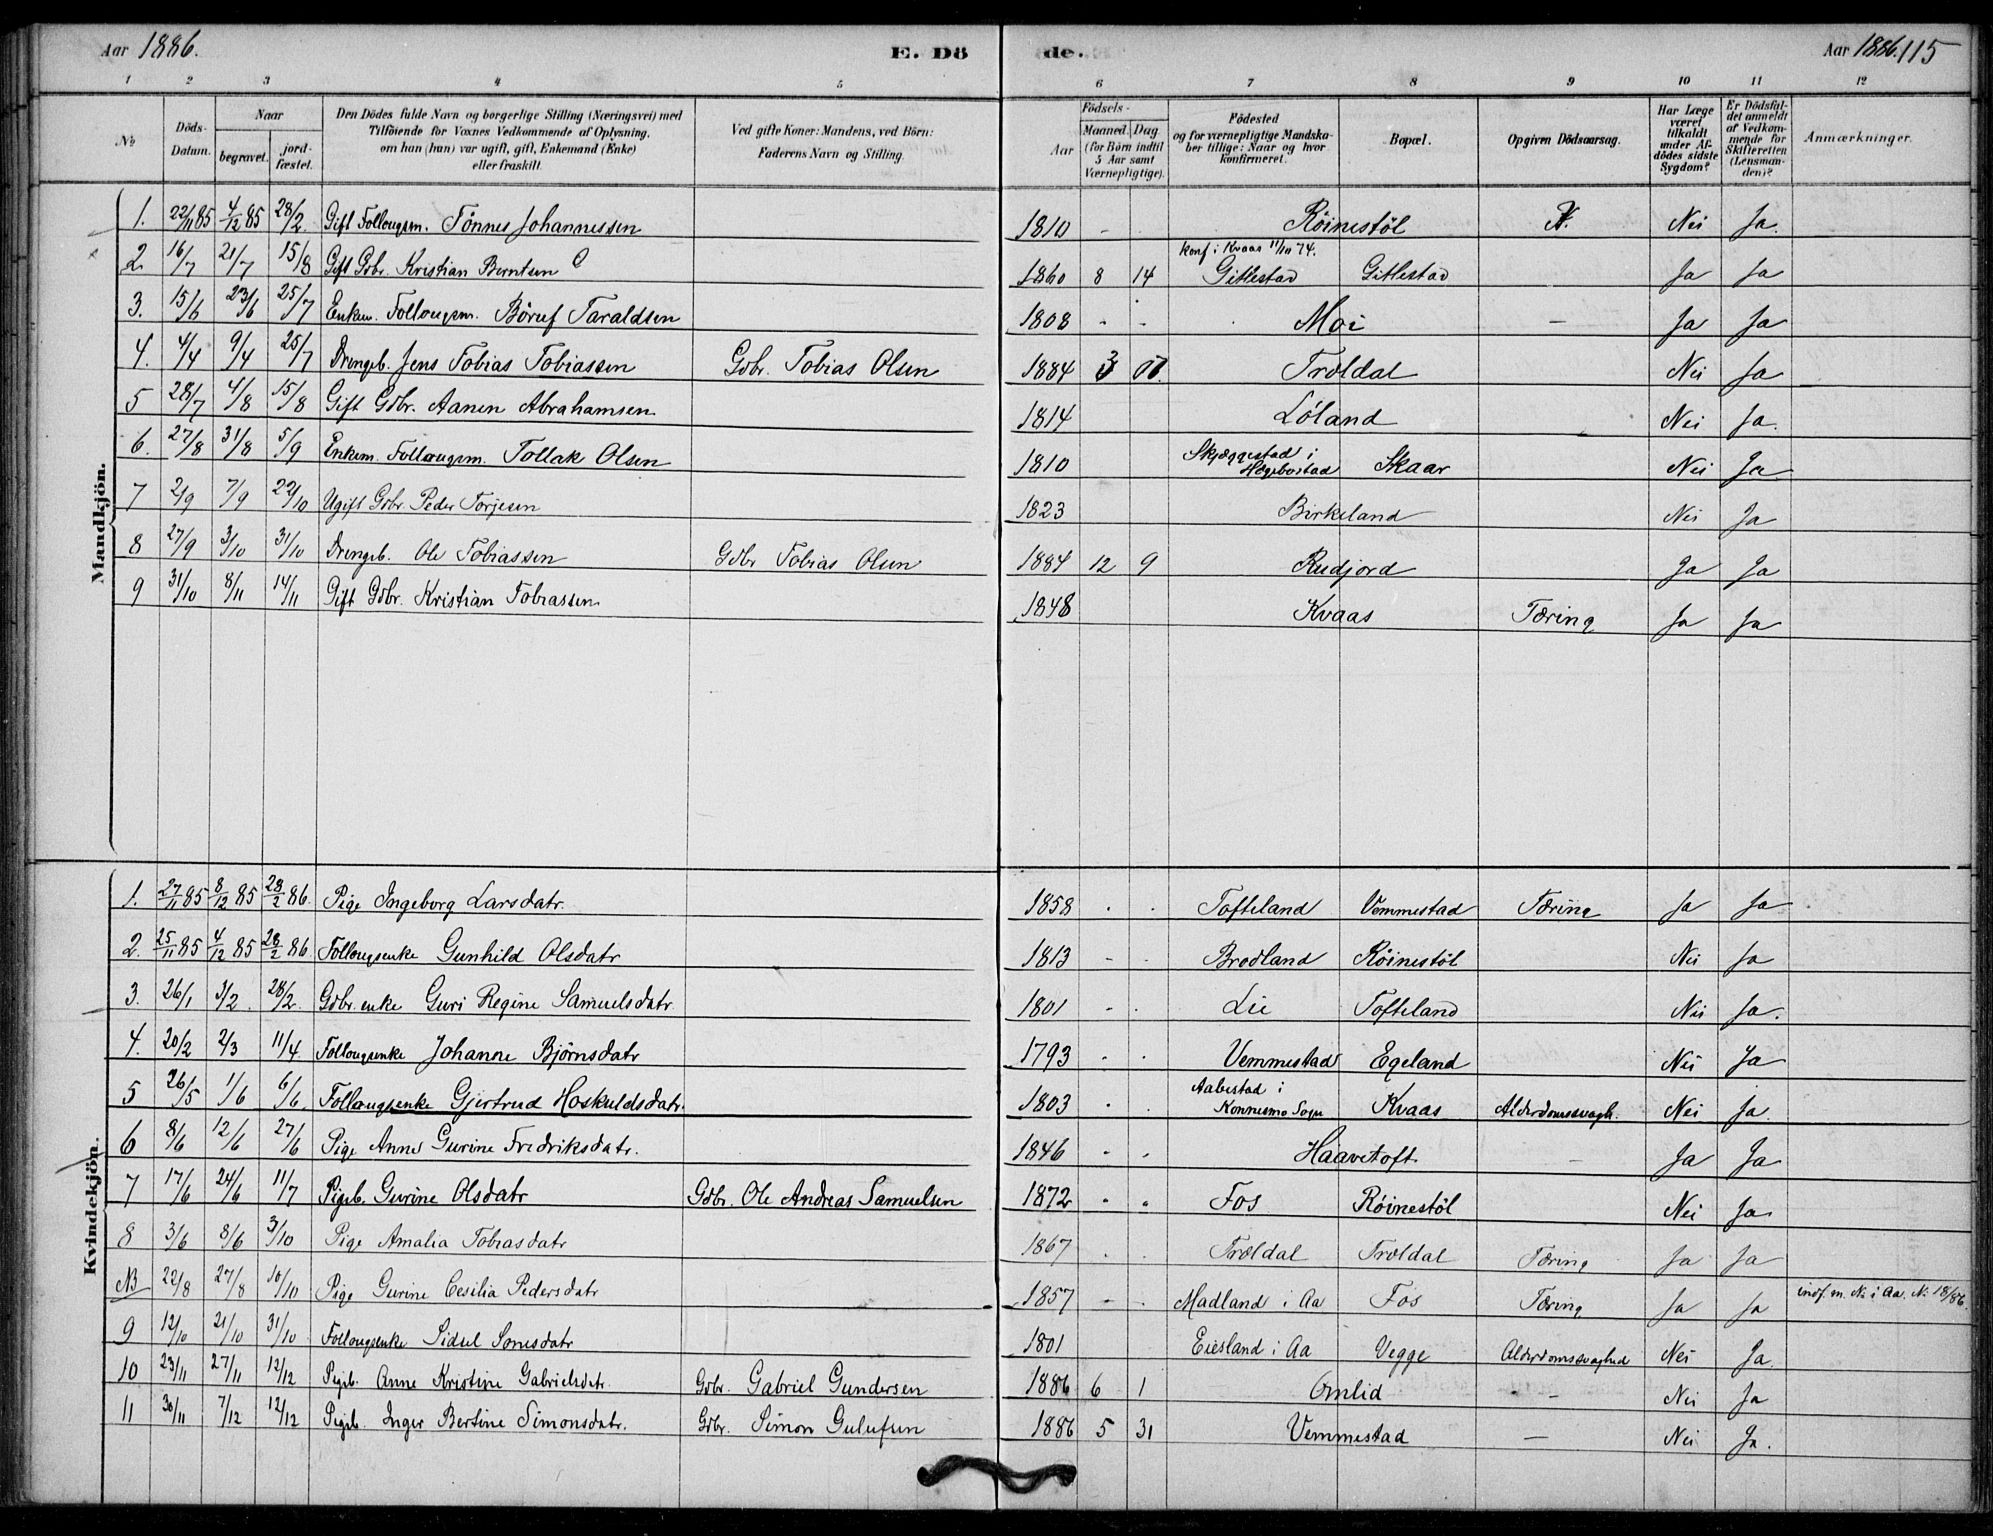 Aar 1886. E. Dö de. Aar 1886. 115
1 2 3 4 5 6 7 8 9 10 11 12
No
Döds-Datum.
Naar
begravet. jord-fæstet.
Den Dödes fulde Navn og borgerlige Stilling (Næringsvei) med
Tilföiende for Voxnes Vedkommende af Oplysning,
om han (hun) var ugift, gift, Enkemand (Enke)
eller fraskilt.
Ved gifte Koner: Mandens, ved Börn:
Faderens Navn og Stilling.
Födsels-
Aar Maaned. Dag
(for Börn indtil
5 Aar samt
Værnepligtige).
Födested
og for værnepligtige Mandska-
ber tillige: Naar og hvor
konfirmeret.
Bopæl.
Opgiven Dödsaarsag.
Har Læge
været
tilkaldt
under Af-
dödes sidste
Sygdom?
Er Dödsfal-
det anmeldt
af Vedkom-
mende for
Skifteretten
(Lensman-
den)?
Anmærkninger.
Mandkjön.
1. 22/11 85 4/12 85 28/2. Gift Follougsm. Tönnes Johannessen 1810 - Röinestöl Nei Ja.
2 16/7 21/7 15/8 Gift Gdbr. Kristian Berntsen 1860 8 14 konf i Kvaas 11/10 74. Gitlestad Gitlestad Ja Ja
3. 15/6 23/6 25/7 Enkem. Follougsm. Böruf Taraldsen 1808 - - Moi - Ja Ja
4. 4/4 9/4 25/7 Drengeb. Jens Tobias Tobiassen Gdbr. Tobias Olsen 1884 3 Troldal Nei Ja
5 28/7 4/8 15/8 Gift Gdbr. Aanen Abrahamsen 1814 Löland Nei Ja.
6. 27/8 31/8 5/9 Enkem. Follougsm. Tollak Olsen 1810 Skjeggestad i Hægebostad Skaar Nei Ja
7 2/9 7/9 22/10 Ugift Gdbr. Peder Torjesen 1823 Birkeland Nei Ja
8 27/9 3/10 31/10 Drengeb. Ole Tobiassen Gdbr Tobias Olsen 1884 12 9 Rudjord Ja Ja
9 31/10 8/11 14/11 Gift Gdbr. Kristian Tobiassen 1848 Kvaas Tæring Ja Ja
Kvindekjön.
1. 27/11 85 8/12 85 28/2 86. Pige Ingeborg Larsdatr. 1858 - - Tofteland Vemmestad Tæring Ja Ja
2. 25/11 85 4/12 85 28/2 86. Follougsenke Gunhild Olsdatr 1813 - - Brodland Röinestöl Nei Ja
3. 26/1 3/2. 28/2. Gdbr. enke Guri Regine Samuelsdatr. 1801 - - Lie Tofteland Nei Ja.
4. 20/2 2/3 11/4 Follougsenke Johanne Björnsdatr 1793 - - Vemmestad Egeland Nei Ja
5 26/5 1/6 6/6. Follougsenke Gjertrud Hoskuldsdatr. 1803 - - Aabestad i Konnesmo Sogn Kvaas Alderdomssvagh. Nei Ja
6 8/6 12/6 27/6 Pige Anne Gurine Fredriksdatr. 1846 - - Haavetoft - Ja Ja
7 17/6 24/6 11/7 Pigeb. Gurine Olsdatr Gdbr. Ole Andreas Samuelsen 1872 - - Fos Röinestöl Nei Ja
8 3/6 8/6 3/10 Pige Amalia Tobiasdatr 1867 - - Troldal Troldal Tæring Ja Ja
NB 22/8 27/8 10/10 Pige Gurine Cesilia Pedersdatr 1857 - - Madland i Aa Fos Tæring Ja Ja indf. m. No i Aa. No 18/86
9 12/10 21/10 31/10 Follougsenke Sidsel Sonesdatr 1801 Eiesland i Aa Vegge Alderdomssvaghed Nei Ja.
10 23/11 27/11 12/12 Pigeb. Anne Kristine Gabrielsdatr. Gdbr. Gabriel Gundersen 1886 6 1 Omlid - Nei Ja
11 30/11 7/12 12/12 Pigeb. Inger Bertine Simonsdatr. Gdbr. Simon Gulufsen 1886 5 31 Vemmestad - Nei Ja.